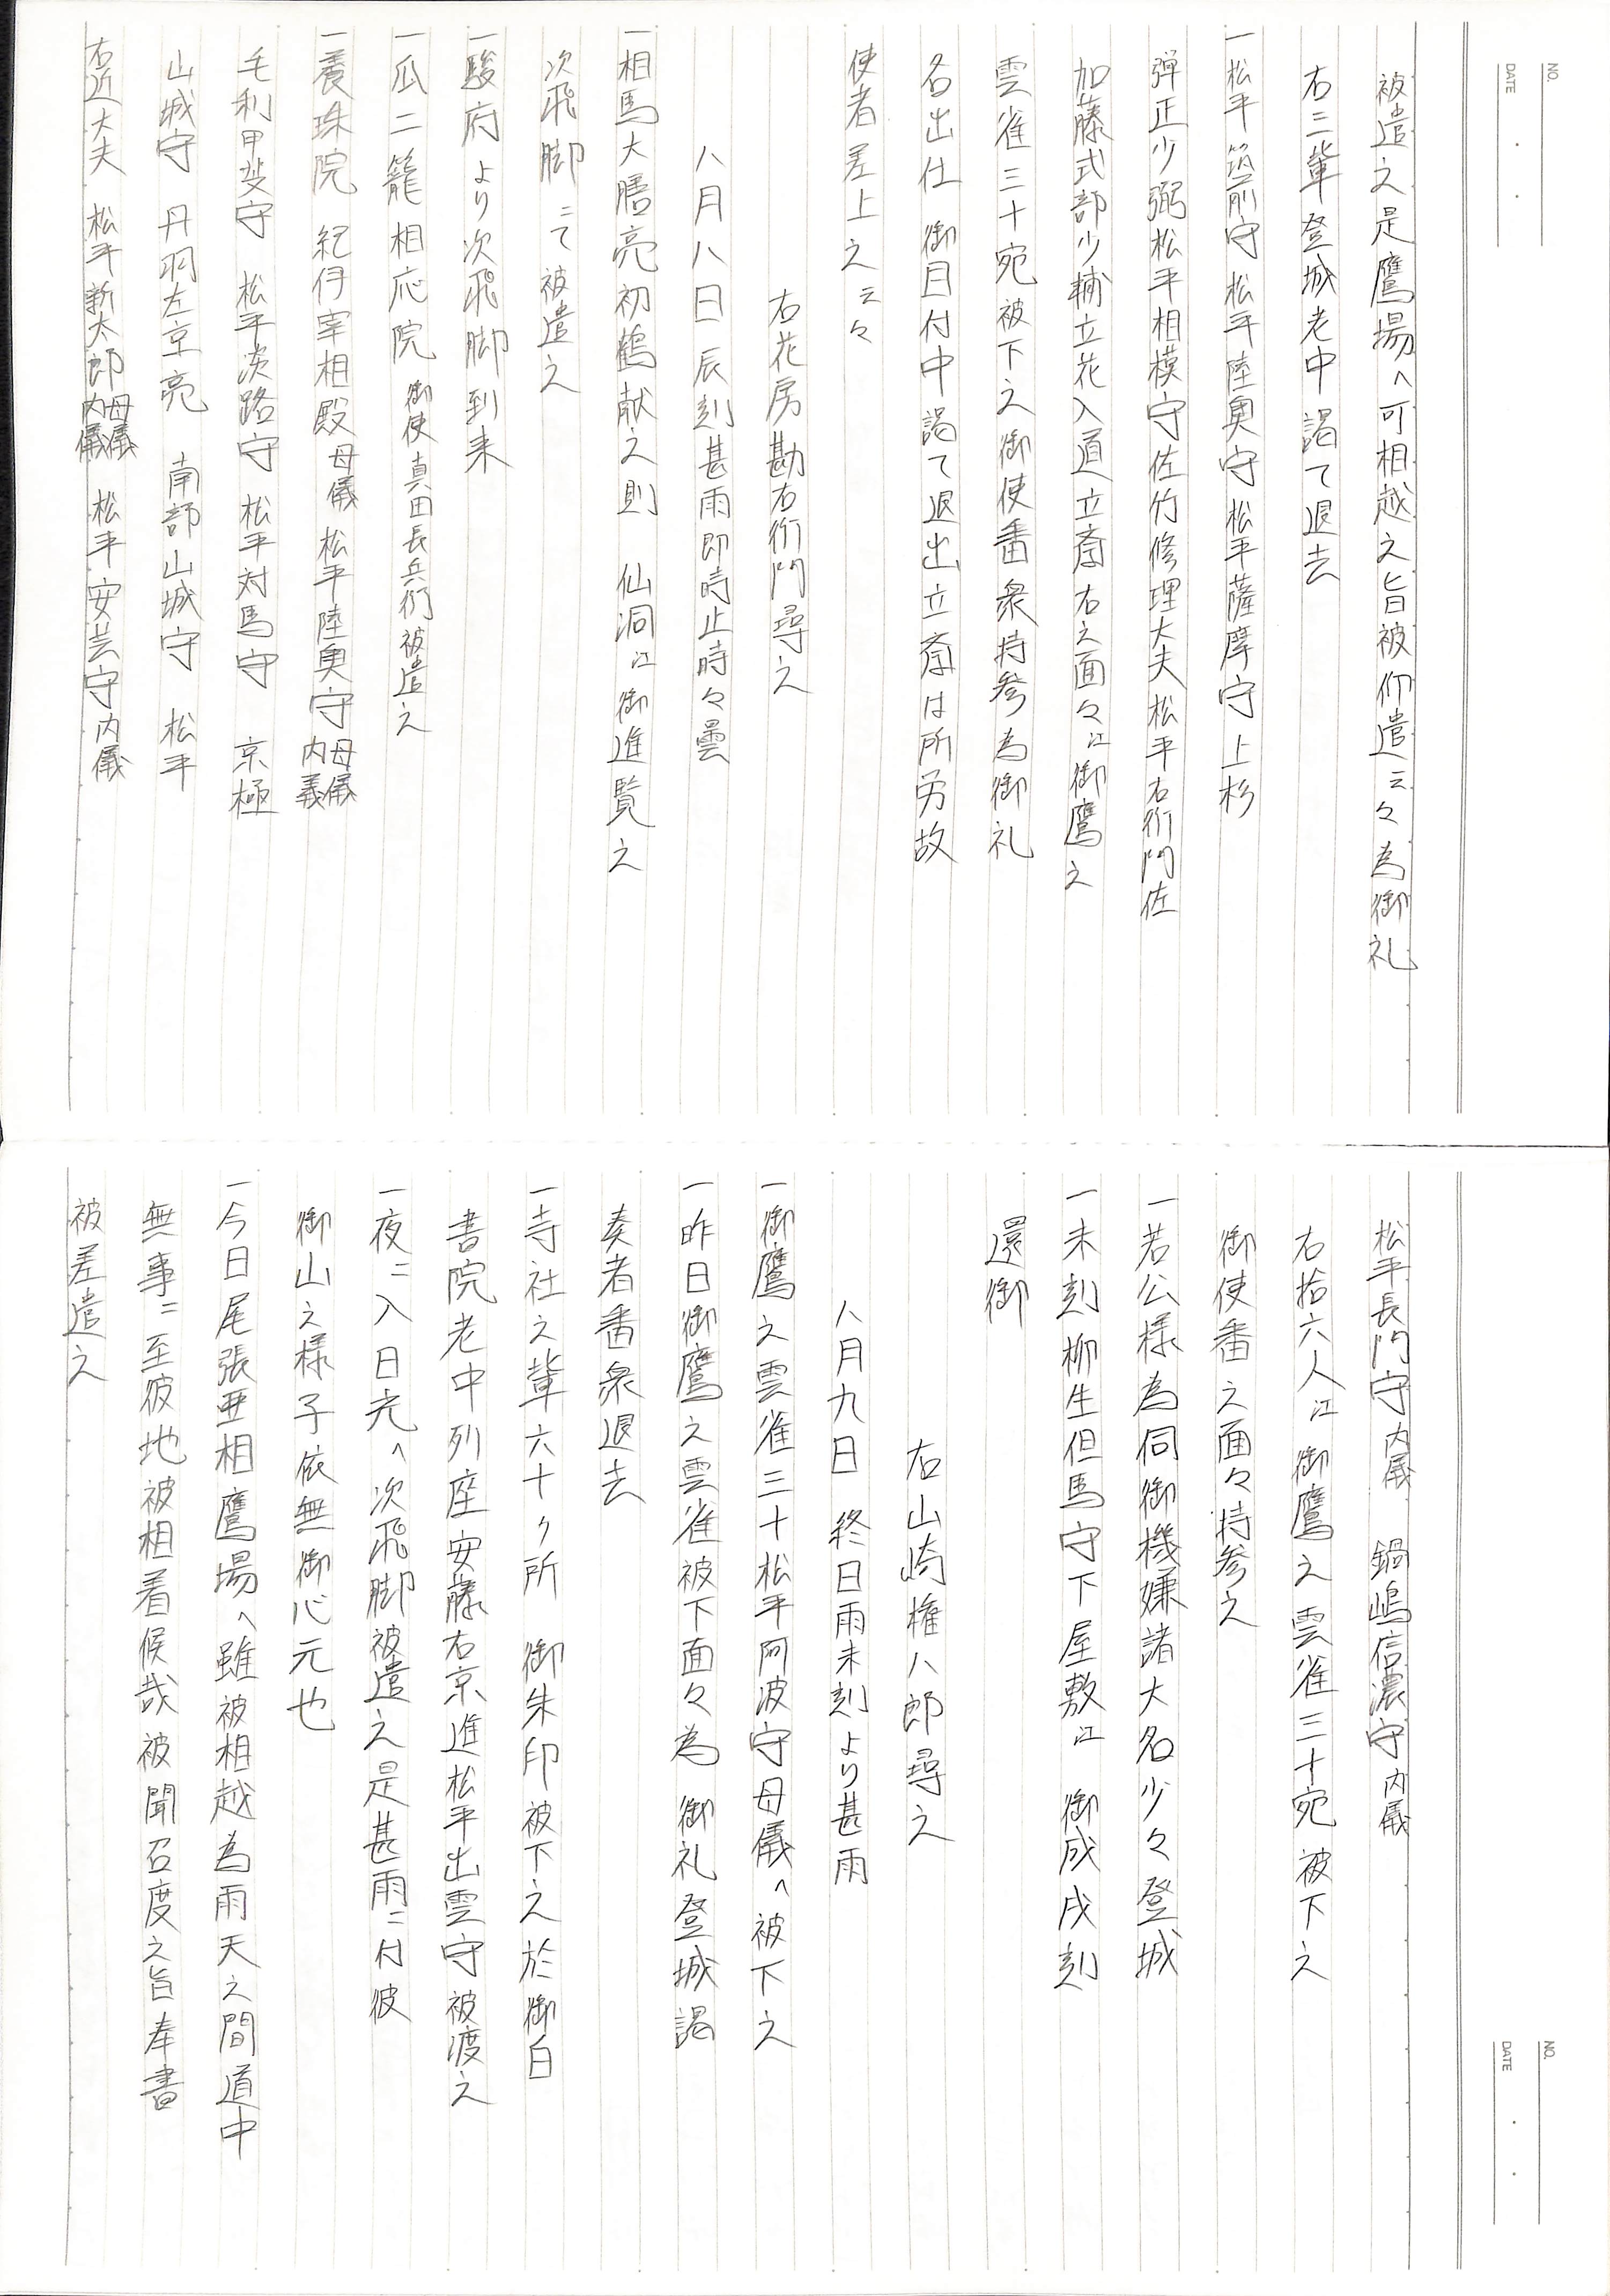 NO.
DATE ・ ・
被遣之是鷹場へ可相越之旨被仰遣云々為御礼
右三輩登城老中謁て退去
一松平筑前守松平陸奥守松平薩摩守上杉
弾正少弼松平相模守佐竹修理大夫松平右衛門佐
加藤式部少輔立花入道立斎右之面々江御鷹之
雲雀三十宛被下之御使番衆持参為御礼
各出仕御目付中謁て退出立斎は所労故
使者差上之云々
右花房勘右衛門尋之
八月八日辰刻甚雨即時止時々曇
一相馬大膳亮初鶴献之則 仙洞江御進覧之
次飛脚ニて被遣之
一駿府より次飛脚到来
一瓜二籠相応院御使真田長兵衛被遣之
一養珠院 紀伊宰相殿母儀 松平陸奥守母儀内義
毛利甲斐守 松平淡路守 松平対馬守 京極
山城守 丹羽左京亮 南部山城守 松平
右近大夫 松平新太郎母儀内儀 松平安芸守内儀
NO.
DATE ・ ・
松平長門守内儀 鍋嶋信濃守内儀
右拾六人江御鷹之雲雀三十宛被下之
御使番之面々持参之
一若公様為伺御機嫌諸大名少々登城
一未刻柳生但馬守下屋敷江 御成戌刻
還御
右山崎権八郎尋之
八月九日 終日雨未刻より甚雨
一御鷹之雲雀三十松平阿波守母儀へ被下之
一昨日御鷹之雲雀被下面々為 御礼登城謁
奏者番衆退去
一寺社之輩六十ヶ所 御朱印被下之於御白
書院老中列座安藤右京進松平出雲守被渡之
一夜ニ入日光へ次飛脚被遣之是甚雨ニ付彼
御山之様子依無御心元也
一今日尾張亜相鷹場へ雖被相越為雨天之間道中
無事ニ至彼地被相着候哉被聞召度之旨奉書
被差遣之